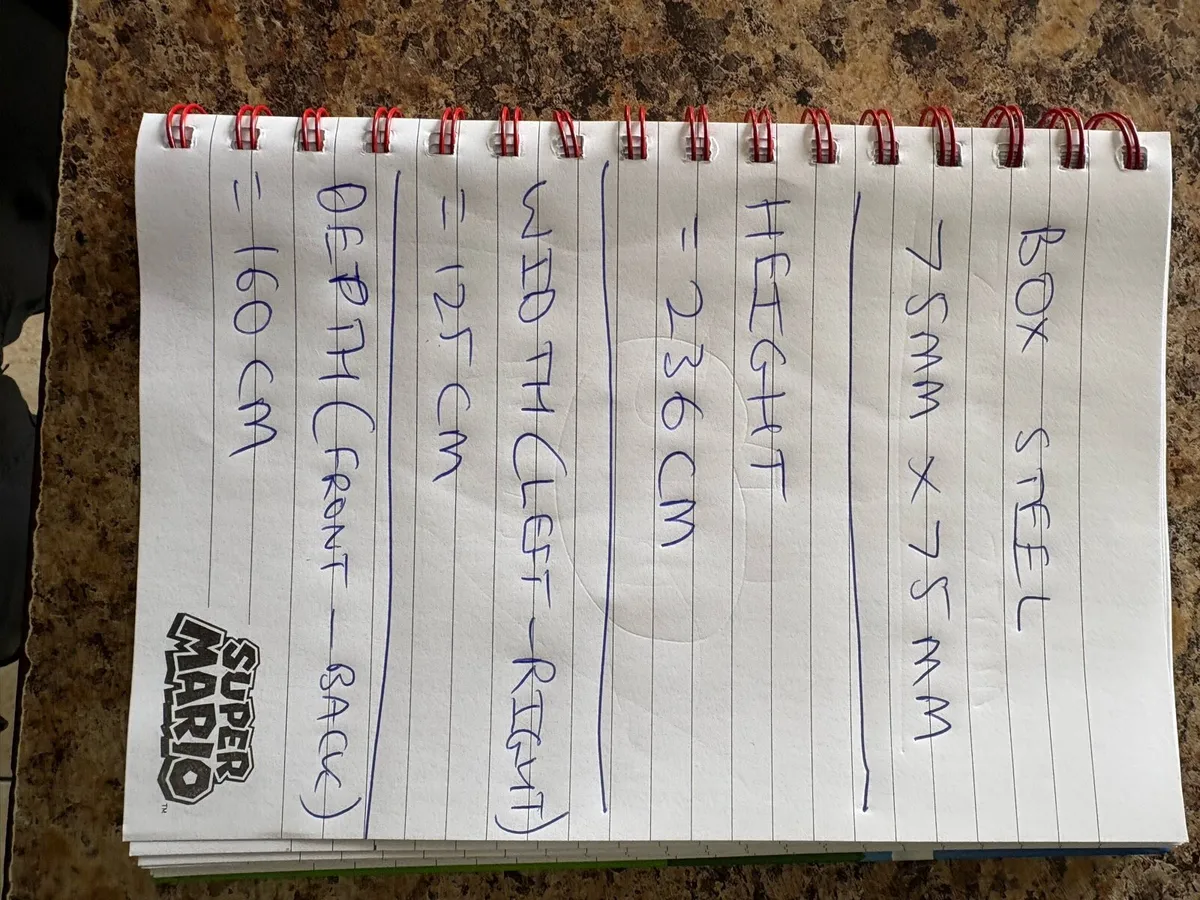 BOX STEEL
75MM X 75MM
HEIGHT
= 236CM
WIDTH (LEFT - RIGHT)
= 125CM
DEPTH (FRONT - BACK)
= 160CM
SUPER
MARIO
TM